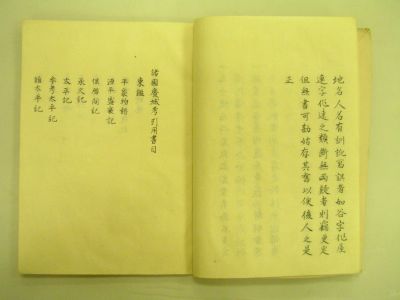 地名人名有訓訛寫誤者如谷字作屋
連字作達之類斷無兩疑者則竊更定
但無書可勘姑存其舊以俟後人之是
正
諸國廢城考引用書目
東鑑
平家物語
源平盛衰記
保曆間記
承久記
太平記
參考太平記
諸太平記